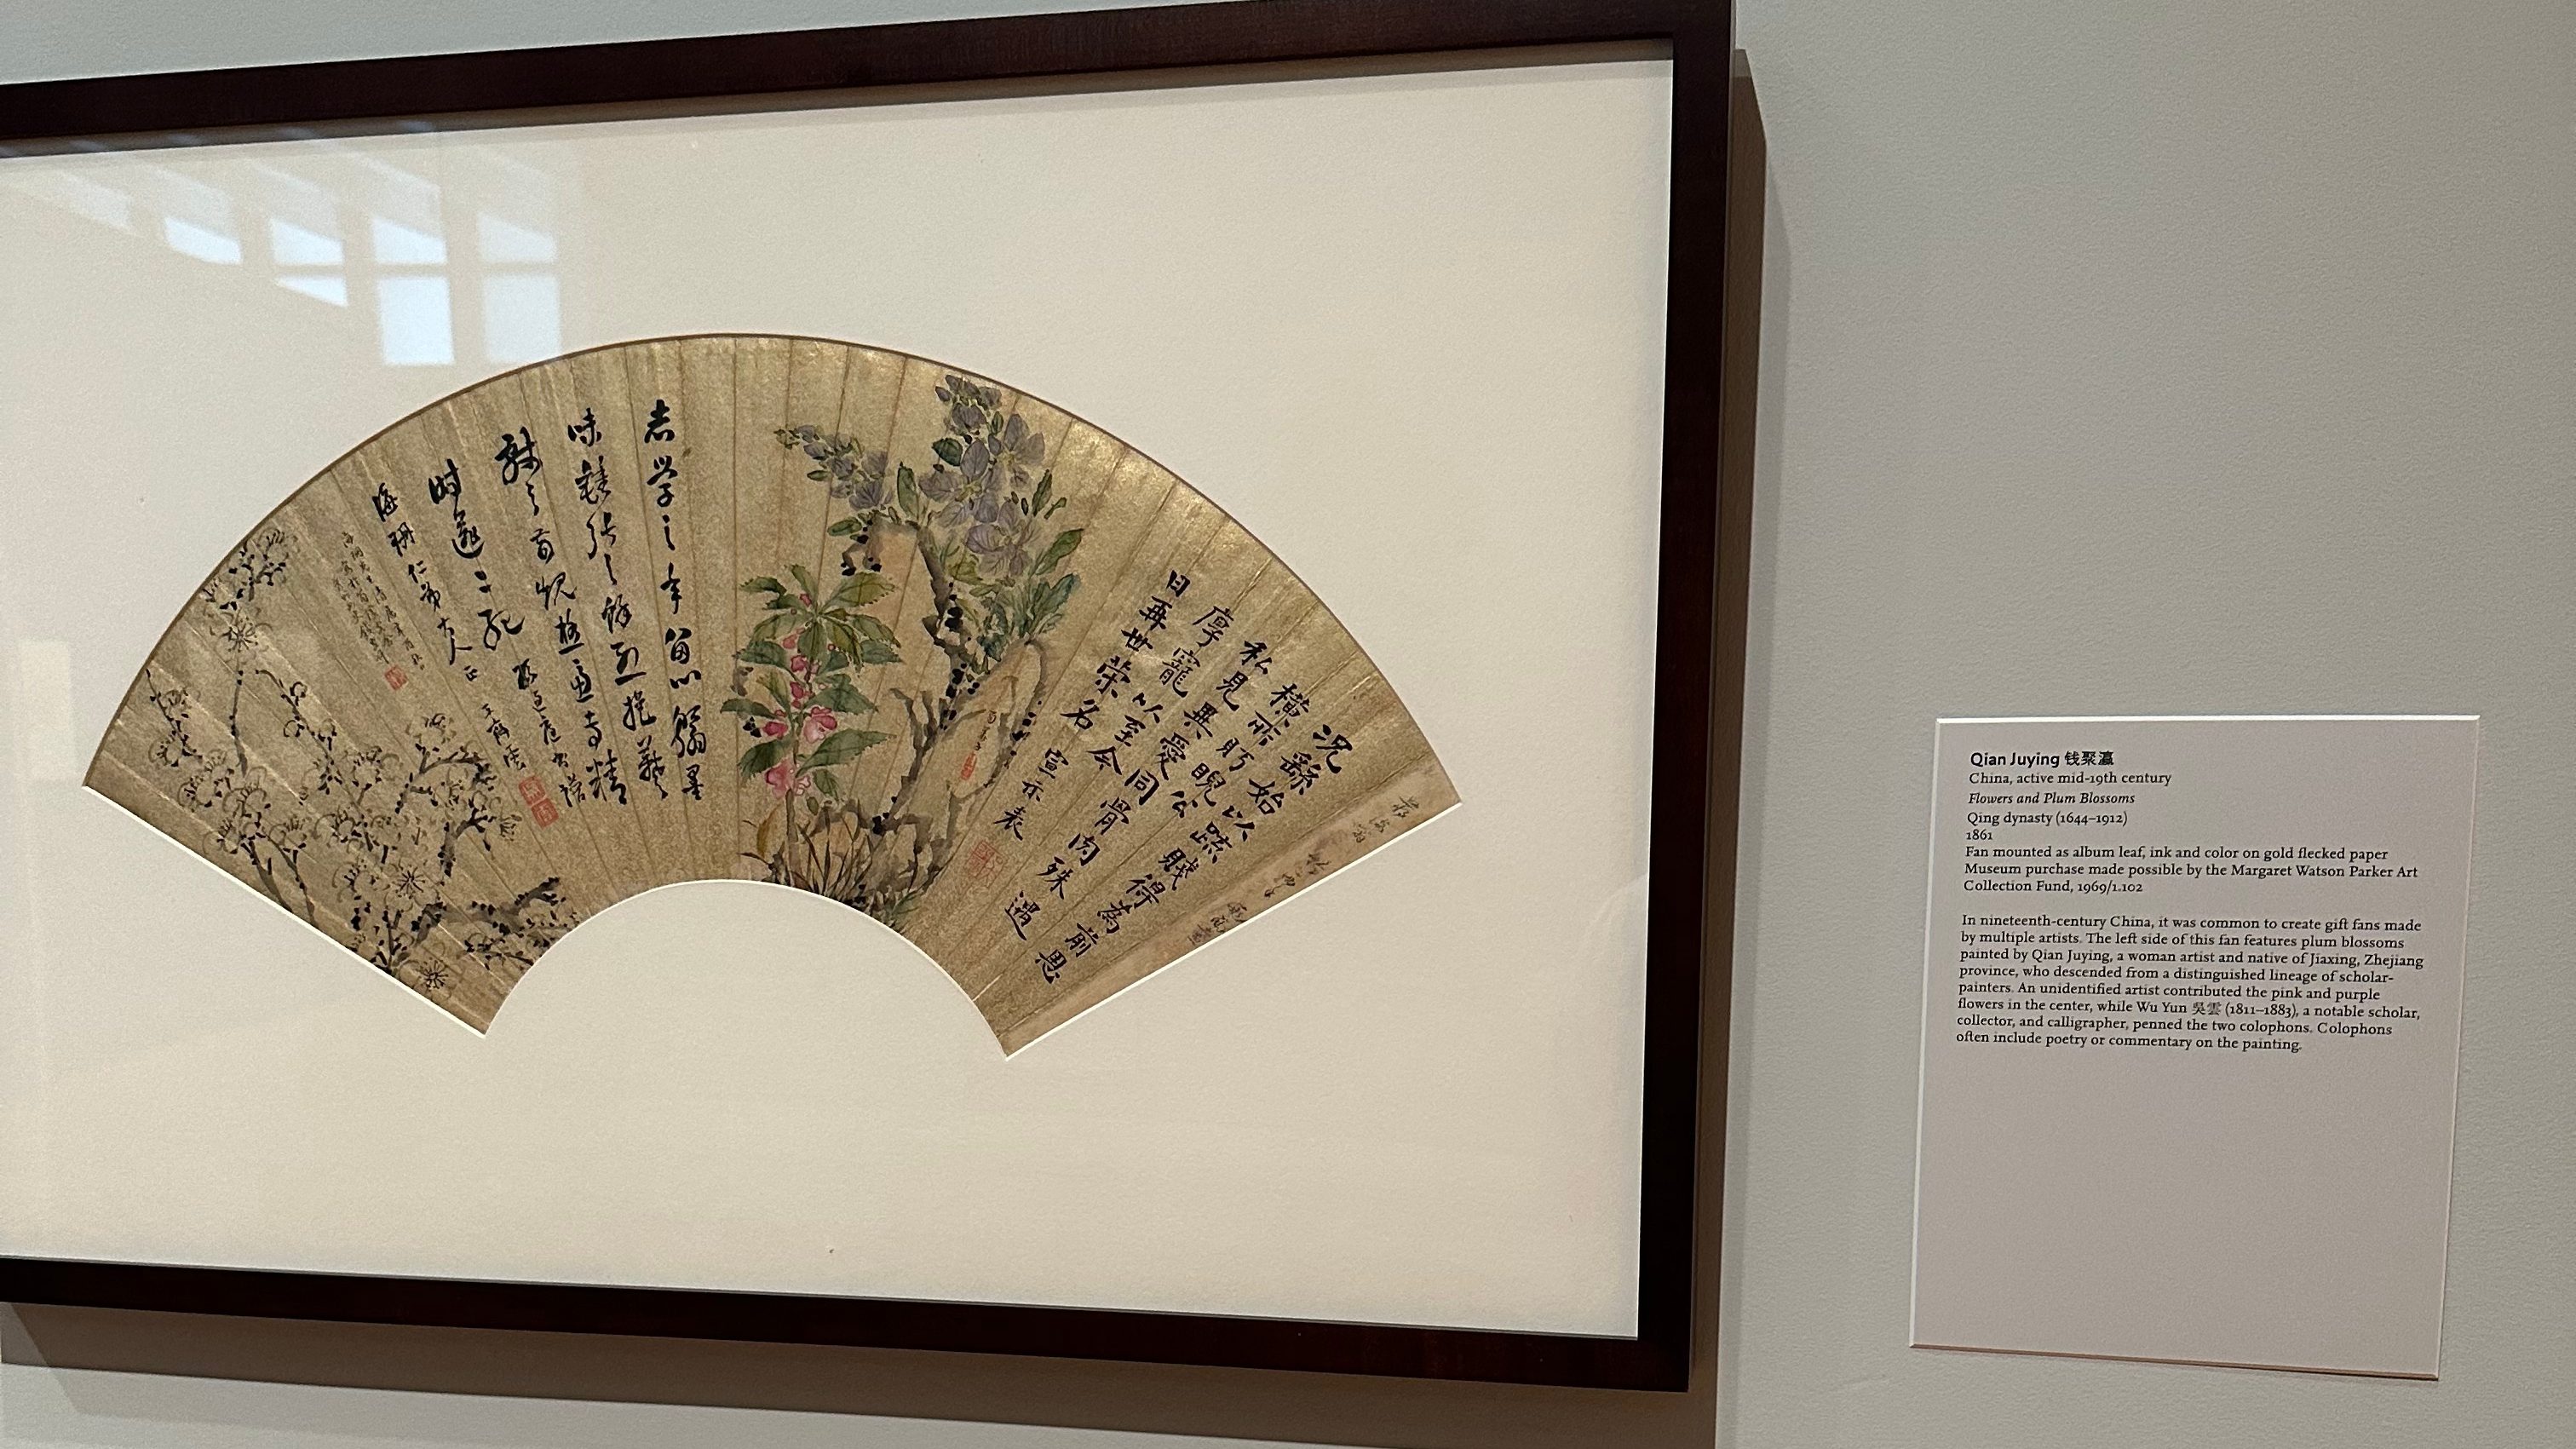 況繇始以疏賤得為前恩
橫所盻睨公
私見異愛同骨肉殊遇
厚寵以至今
日再世榮名 宣示表
志学之年留心翰墨
味鍾張之餘烈挹羲
献之前規極慮专精
时逾二紀 孫過庭書譜
海珊仁弟大人正
Qian Juying 钱聚瀛
China, active mid-19th century
Flowers and Plum Blossoms
Qing dynasty (1644–1912)
1861
Fan mounted as album leaf, ink and color on gold flecked paper
Museum purchase made possible by the Margaret Watson Parker Art
Collection Fund, 1969/1.102
In nineteenth-century China, it was common to create gift fans made
by multiple artists. The left side of this fan features plum blossoms
painted by Qian Juying, a woman artist and native of Jiaxing, Zhejiang
province, who descended from a distinguished lineage of scholar-
painters. An unidentified artist contributed the pink and purple
flowers in the center, while Wu Yun 吳雲 (1811–1883), a notable scholar,
collector, and calligrapher, penned the two colophons. Colophons
often include poetry or commentary on the painting.